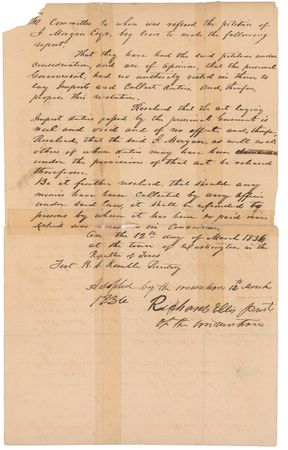 The Committee to whom was refered the petition of
J. Morgan Esqr, beg leave to make the following
report.
That they have had the said petition under
consideration, and are of opinion, that the provisional
Government, had no authority vested in them to
lay Imposts and Collect duties. And, therefore,
propose this resolution.
Resolved that the act laying
Impost duties passed by the provisional Government is
null and void and of no effect, and, therefore,
Resolved, that the said J. Morgan, as well as all
others of whom duties may have been
under the provisions of that act be released
therefrom.
Be it further resolved, that should any
monies have been Collected by any officer
under said Laws, it shall be refunded to
persons by whom it has been so paid over
in Convention
On the 12th day of March 1836
at the town of Washington in the
Republic of Texas
Test H. S. Kimble Secretary
Adopted by the convention 12th March
1836
Richard Ellis Prest
of the convention